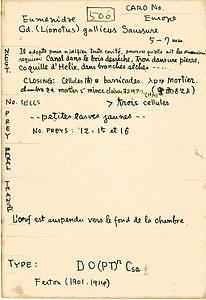 CARD No.
500
Eumenidre Europe
Gd. (Lionotus) gallicus Saussure
5-7 mm.
NEST
Il adopte pour nidifier toute cavité, pourvu qu'elle ait les dimensions
requises: Canal dans le bois desséché, Trou dans une pierre,
coquille d'Hélix, dans branches sèches ....
CLOSING: Cellules 閉 barricades. 入口 mortier.
chambre mortier mince cloison
No. CELLS > trois cellules
PREY
-- petites larves jaunes --
No. PREYS: 12, 15 et 16
TRANS.
L'oeuf est suspendu vers le fond de la chambre.
TYPE: D O (PT)ⁿ Csa
Ferton (1901. 1914)